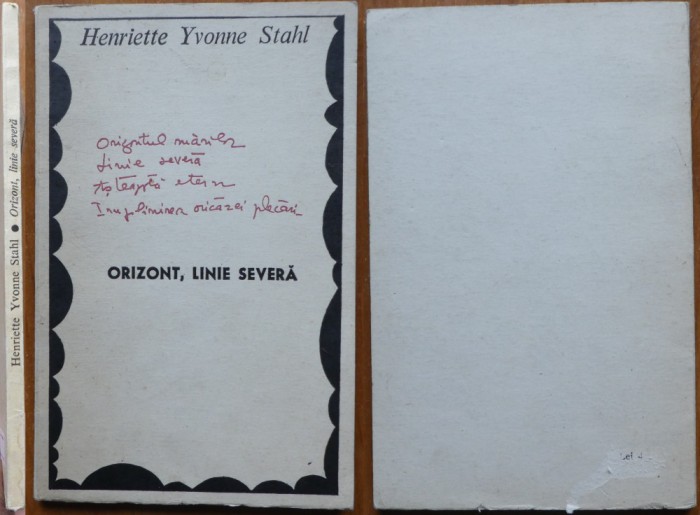 Henriette Yvonne Stahl ● Orizont, linie severă
Henriette Yvonne Stahl
Orizontul mărilor
Linie severă
Așteaptă etern
Împlinirea oricărei plecări
ORIZONT, LINIE SEVERĂ